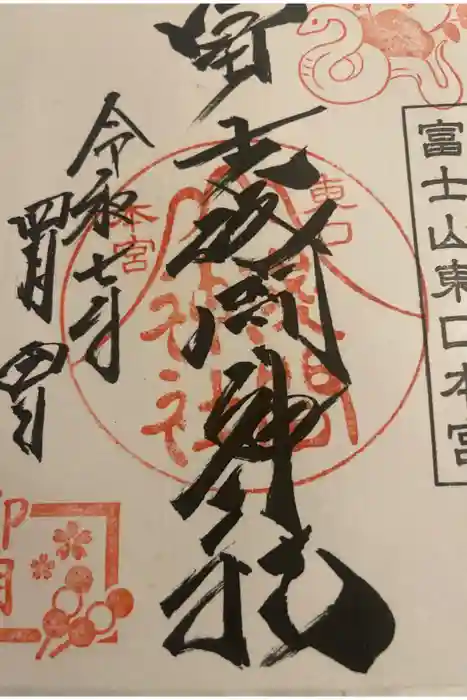 富士山東口本宮
冨士浅間神社
東口
本宮
浅間
神社
令和七年
四月四日
卯月